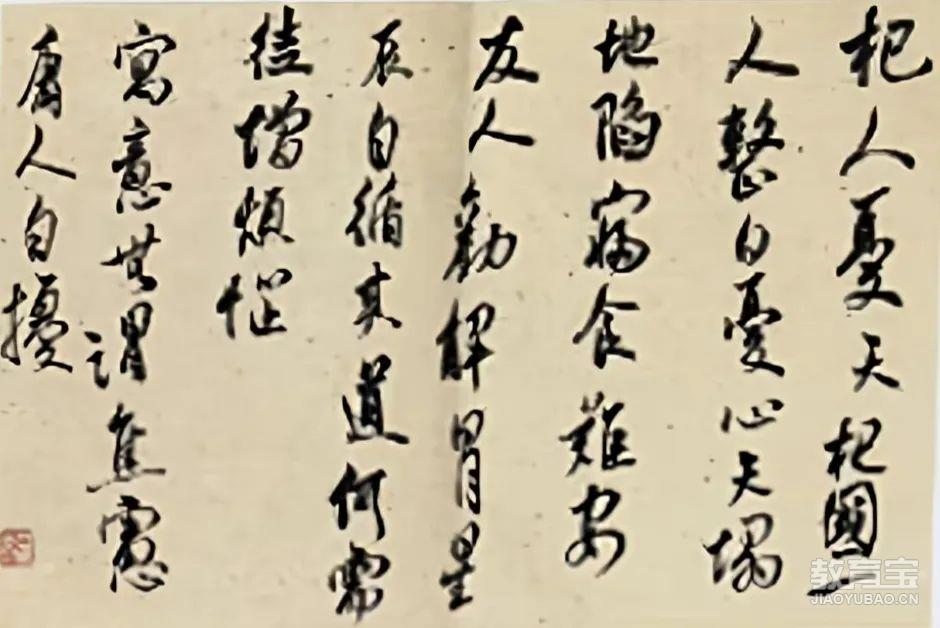 杞人憂天杞國一
人整日憂心天塌
地陷寢食難安
友人勸解日月星
辰自循其道何需
徒增煩惱
寓意世謂焦慮
庸人自擾
教育宝
JIAOYUBAO.CN